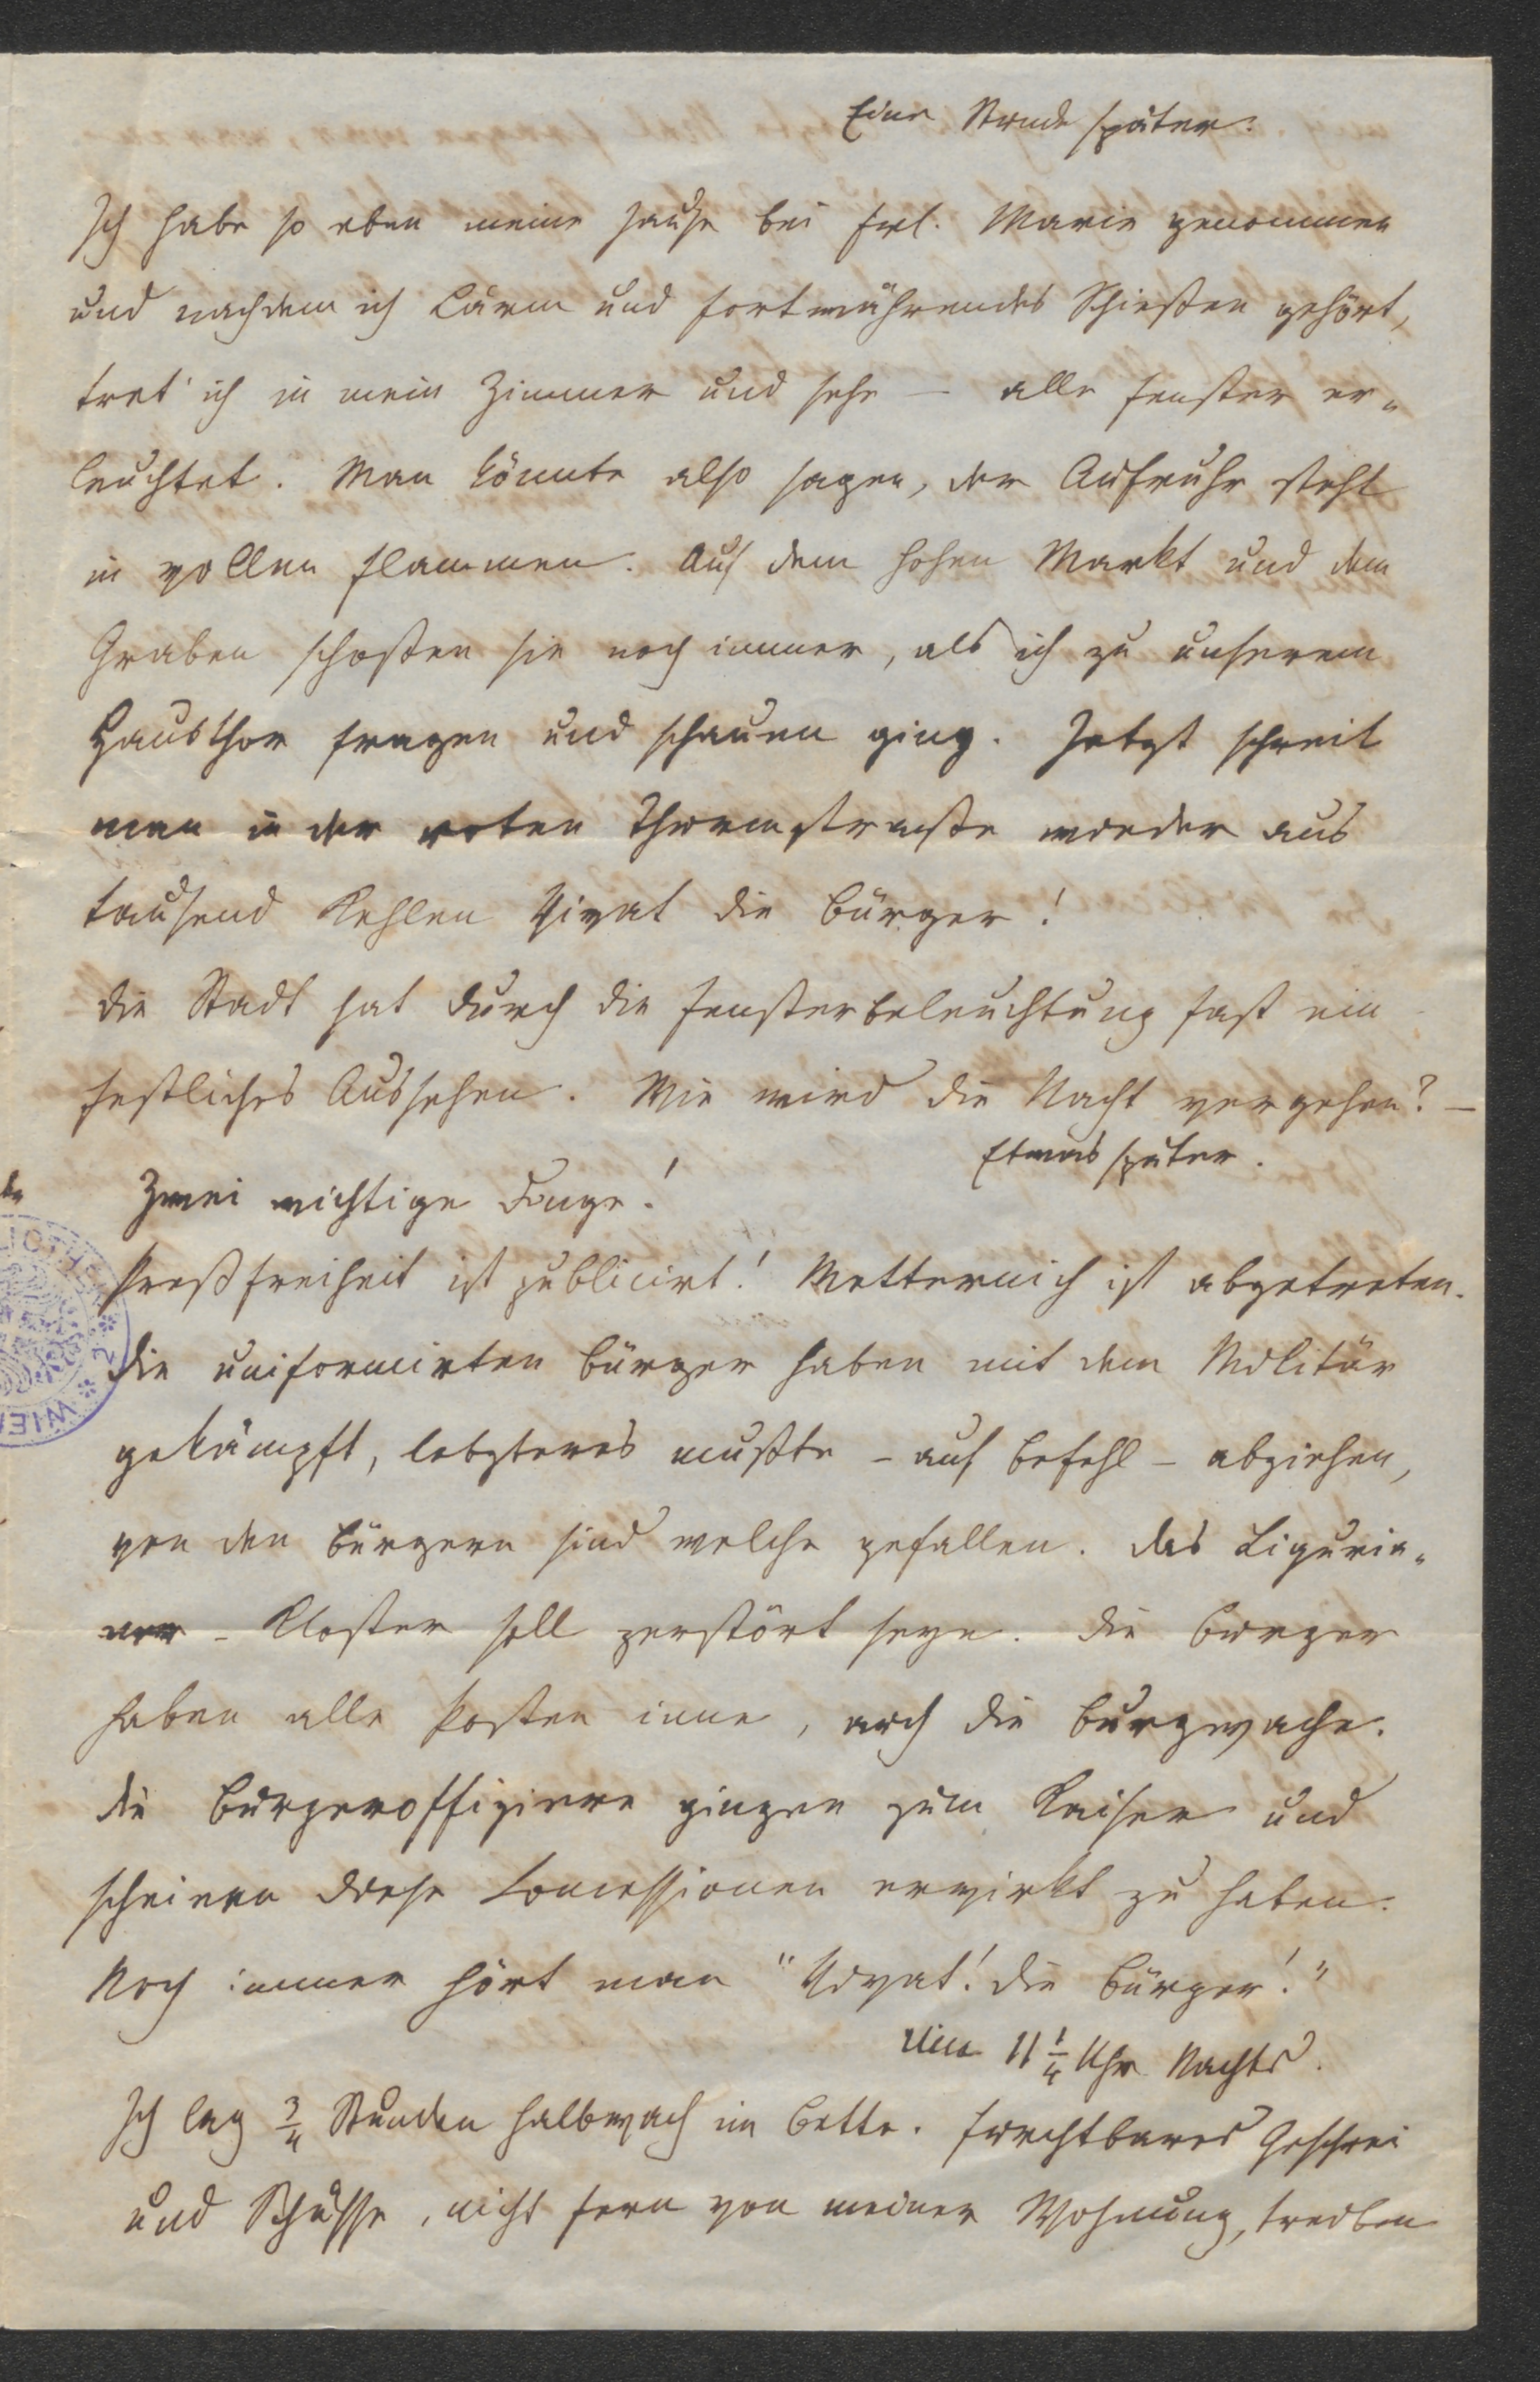 Eine Stunde später.
Ich habe so eben meine Jause bei Frl. Marie genommen
und nachdem ich Lärm und fortwährendes Schießen gehört,
tret' ich in mein Zimmer und sehe – alle Fenster er-
leuchtet. Man könnte also sagen, der Aufruhr steht
in vollen Flammen. Auf dem hohen Markt und dem
Graben schoßen sie noch immer, als ich zu unserem
Hausthor fragen und schauen ging. Jetzt schreit
man in der roten Thurmstraße wieder aus
tausend Kehlen Vivat die Bürger!
Die Stadt hat durch die Fensterbeleuchtung fast ein
festliches Aussehen. Wie wird die Nacht vergehen? –
Etwas später.
Zwei wichtige Dinge!
Preßfreiheit ist publicirt! Metternich ist abgetreten.
Die uniformirten Bürger haben mit dem Militär
gekämpft, letzteres mußte – auf Befehl – abziehen,
von den Bürgern sind welche gefallen. Das Liguria-
ner-Kloster soll zerstört seyn. Die Bürger
haben alle Posten inne, auch die Burgwache.
Die Bürgeroffiziere gingen zum Kaiser und
scheinen diese Concessionen erwirkt zu haben.
Noch immer hört man "Vivat! die Bürger!"
Um 11 1/4 Uhr Nachts.
Ich lag 3/4 Stunden halbwach im Bette. Furchtbares Geschrei
und Schüsse, nicht fern von meiner Wohnung, treiben
WIEN